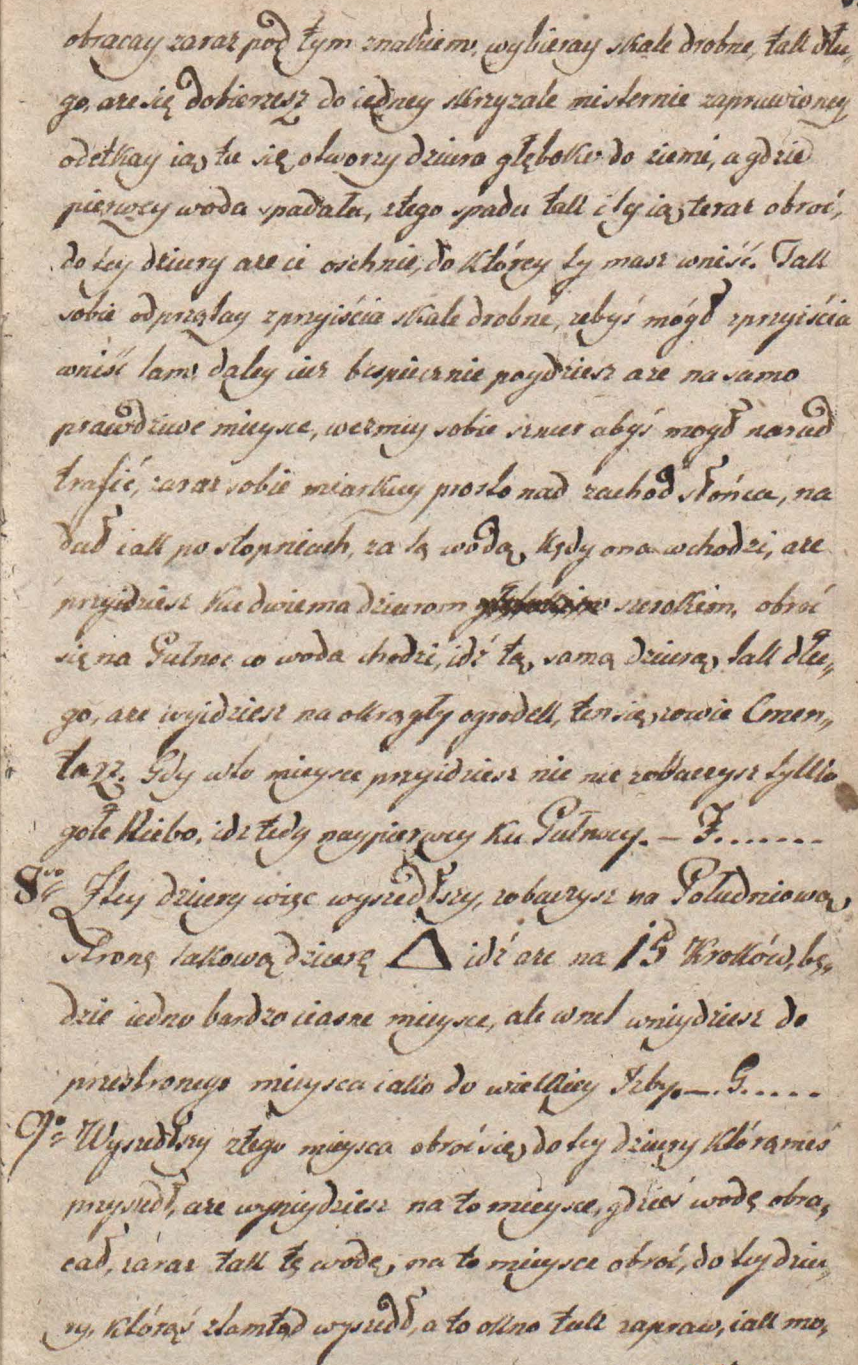 obracay zaraz pod tym znakiem, wybieray skale drobne, tak dłu„
go, aze się dobierzesz do iedney skrzyzale misternie zaprawioney
odetkay ią, tu się otworzy dziura głęboko do ziemi, a gdzie
pierwey woda spadała, ztego spadu tak i ty ią teraz obroć,
do tey dziury aze ci oschnie, do którey ty masz wniść. Tak
sobie odprzątay zprzyiścia skale drobne, zebyś mógł zprzyiścia
wniść tam, daley iuz bespiecznie poydziesz aze na samo
prawdziwe mieysce, wezmiy sobie sznur abyś mogł nazad
trafić, zaraz sobie miarkuy prosto nad zachod słońca, na
duł iak po stopniach, za tą wodą, kędy ona wchodzi, aze
przyidziesz ku dwiema dziurom szerokim, obroć
się na Pułnoc co woda chodzi, idź tą samą dziurą, tak dłu„
go, aze wyidziesz na okrągły ogrodek, ten się zowie Cmen„
tarz. Gdy wto mieysce przyidziesz nic nie zobaczysz tylko
gołe Niebo, idz tedy naypierwey ku Pułnocy. – F.......
8vo Ztey dziury więc wyszedłszy, zobaczysz na Południową
stronę takową dziurę △ idź aze na 15 Kroków, bę„
dzie iedno bardzo ciasne mieysce, ale wnet wniydziesz do
przestronego mieysca iako do wielkiey Izby. —. G.....
9o Wyszedłszy ztego mieysca obroć się do tey dziury którąmeś
przyszedł, aze wyniydziesz na to mieysce, gdzieś wodę obra„
cał, záraz tak tę wodę, na to mieysce obroć, do tey dziu„
ry, którąś ztamtąd wyszedł, a to okno tak zapraw, iak mo„